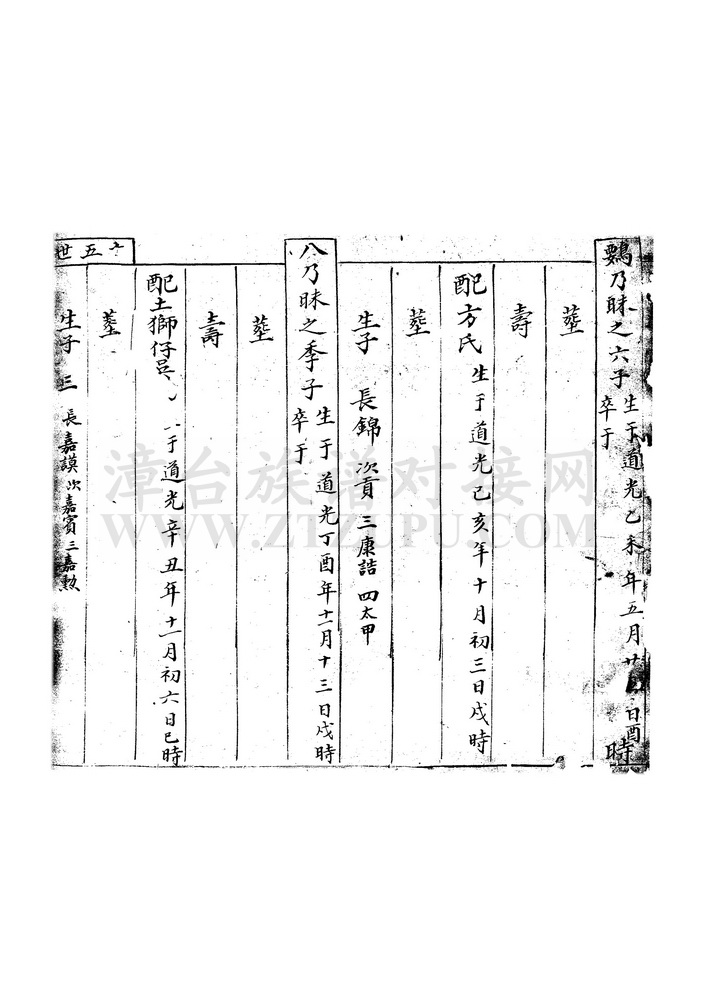 鸚乃眛之六子 生于道光乙未年五月廿 日酉時
卒于
塟
壽
配方氏 生于道光己亥年十月初三日戌時
塟
生子 長錦 次貢 三康誥 四太甲
八乃眛之季子 生于道光丁酉年十一月十三日戌時
卒于
塟
壽
配土獅仔呂 于道光辛丑年十一月初六日巳時
塟
生子三 長嘉謨 次嘉賓 三嘉勲
五世
漳台族谱对接网
WWW.ZTZUPU.COM